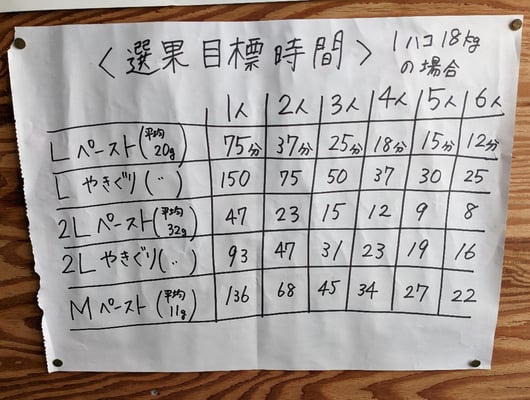 〈選果目標時間〉 1ハコ18kg
の場合
1人 2人 3人 4人 5人 6人
Lペースト(平均20g) 75分 37分 25分 18分 15分 12分
Lやきぐり(〃) 150 75 50 37 30 25
2Lペースト(平均32g) 47 23 15 12 9 8
2Lやきぐり(〃) 93 47 31 23 19 16
Mペースト(平均11g) 136 68 45 34 27 22